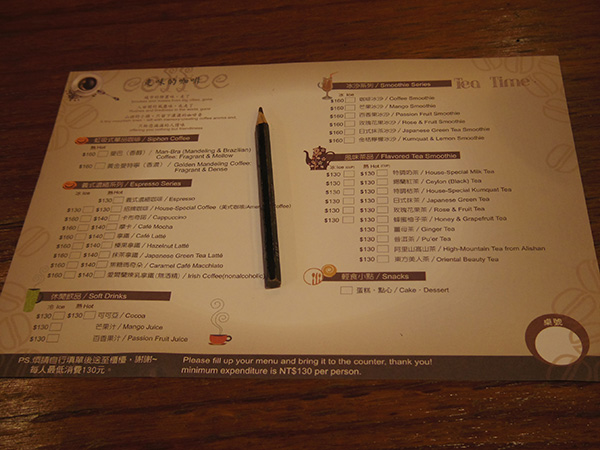 coffee
Siphon Coffee
熱 Hot
$160 曼巴 (香醇) / Man-Bra (Mandeling & Brazilian) Coffee: Fragrant & Mellow
$160 黃金曼特寧 (香濃) / Golden Mandeling Coffee: Fragrant & Dense
義式濃縮系列 / Espresso Series
冰 Ice 熱 Hot
$130 義式濃縮咖啡 / Espresso
$130 $130 招牌咖啡 / House-Special Coffee
$160 $140 卡布奇諾 / Cappuccino
$160 $140 摩卡 / Café Mocha
$160 $140 拿鐵 / Café Latté
$160 $140 榛果拿鐵 / Hazelnut Latté
$160 $140 抹茶拿鐵 / Japanese Green Tea Latté
$160 $140 焦糖瑪奇朵 / Caramel Café Macchiato
$160 $140 愛爾蘭煉乳拿鐵 (無酒精) / Irish Coffee(nonalcoholic)
休閒飲品 / Soft Drinks
冰 Ice 熱 Hot
$130 $130 可可亞 / Cocoa
$130 芒果汁 / Mango Juice
$130 百香果汁 / Passion Fruit Juice
Tea Time
冰沙系列 / Smoothie Series
冰 Ice
$160 咖啡冰沙 / Coffee Smoothie
$160 芒果冰沙 / Mango Smoothie
$160 百香果冰沙 / Passion Fruit Smoothie
$160 玫瑰花果冰沙 / Rose & Fruit Smoothie
$160 日式抹茶冰沙 / Japanese Green Tea Smoothie
$160 金桔檸檬冰沙 / Kumquat & Lemon Smoothie
風味茶品 / Flavored Tea Smoothie
$130 $130 特調奶茶 / House-Special Milk Tea
$130 $130 錫蘭紅茶 / Ceylon (Black) Tea
$130 $130 特調桔茶 / House-Special Kumquat Tea
$130 $130 日式抹茶 / Japanese Green Tea
$130 $130 玫瑰花果茶 / Rose & Fruit Tea
$130 $130 蜂蜜柚子茶 / Honey & Grapefruit Tea
$130 薑母茶 / Ginger Tea
$130 普洱茶 / Pu'er Tea
$130 阿里山高山茶 / High-Mountain Tea from Alishan
$130 東方美人茶 / Oriental Beauty Tea
輕食小點 / Snacks
蛋糕、點心 / Cake、Dessert
桌號
PS.煩請自行填單後送至櫃檯，謝謝~
每人最低消費130元。
Please fill up your menu and bring it to the counter, thank you!
minimum expenditure is NT$130 per person.